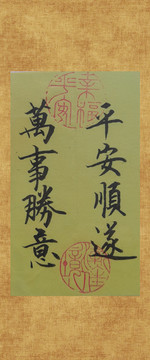 平安順遂
萬事勝意